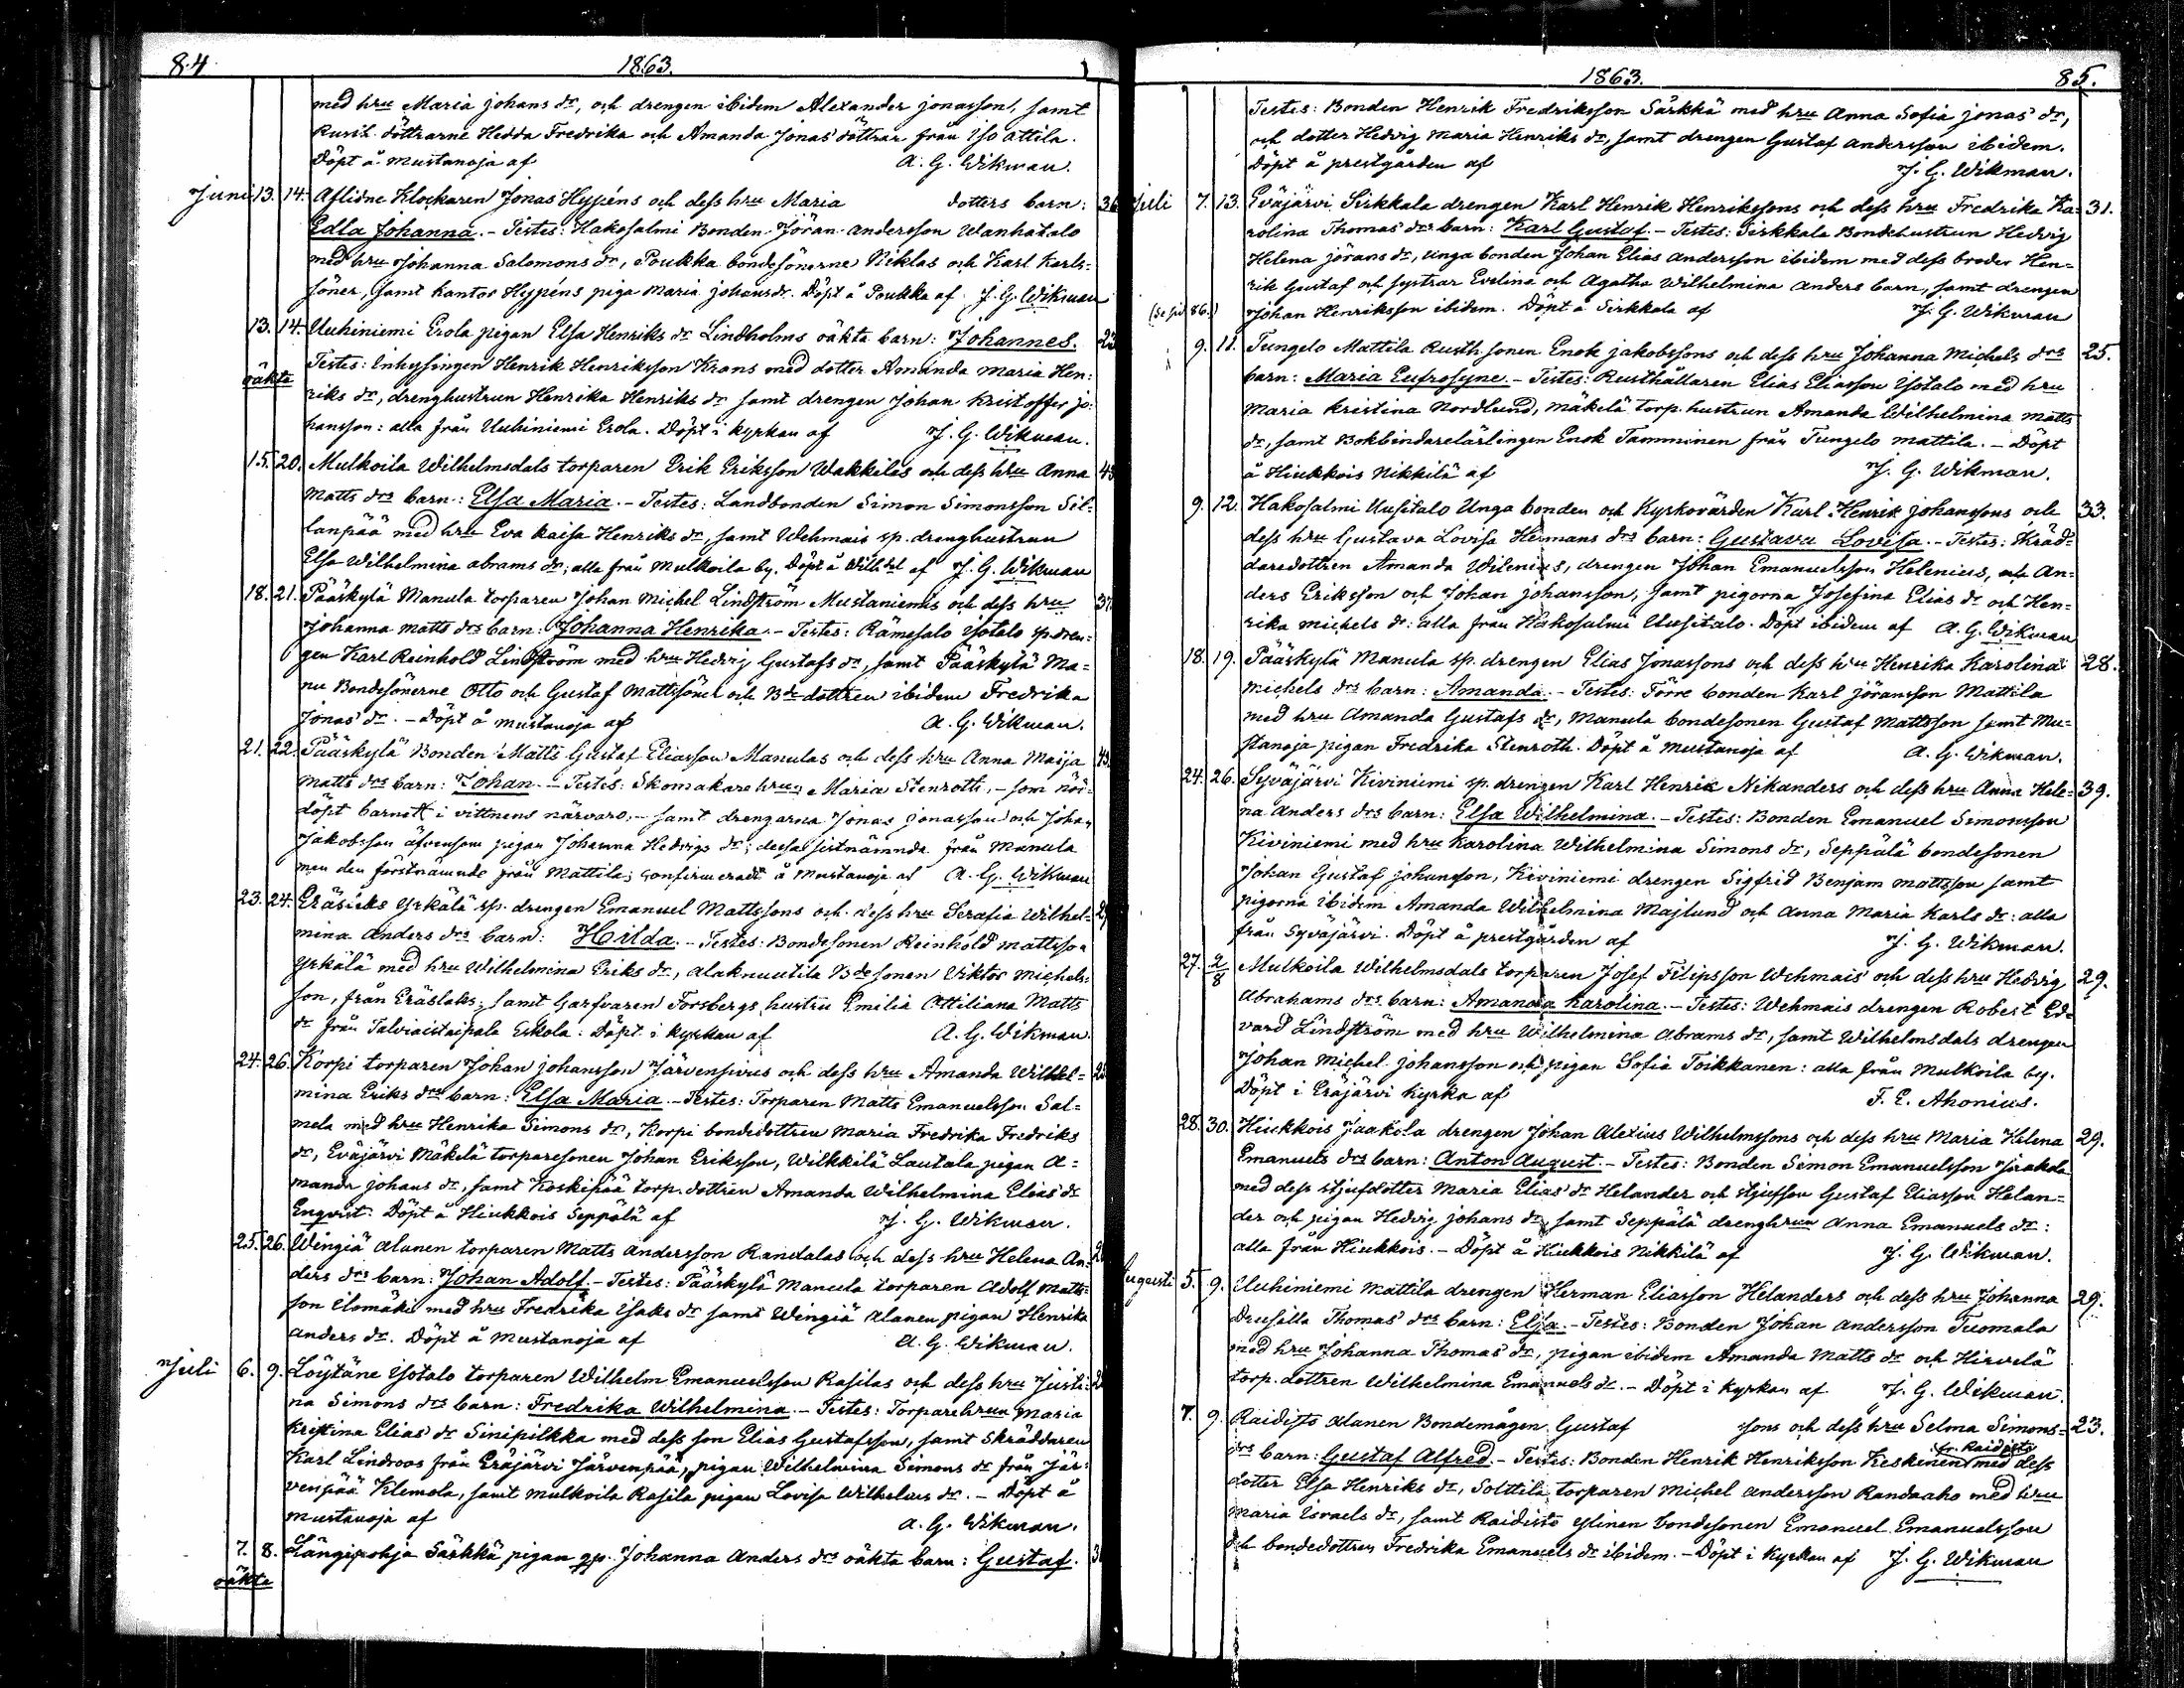 84
1863.
med hru Maria johans dr, och drengen ibidem Alexander jonasson, samt
Rusth. döttrarne Hedda Fredrika och Amanda Jonas döttrar från Iso attila.
Döpt å Mustanoja af A. G. Wikman.
Juni 13. 14. Aflidne Klockaren Jonas Hypéns och dess hru Maria dotters barn: 36
Edla Johanna. - Testes: Hakosalmi Bonden Jöran andersson Wanhatalo
med hru Johanna Salomons dr, Poukka bondesönerne Niklas och Karl Karls=
söner, samt Kantor Hypéns piga Maria johansdr. Döpt å Poukka af J. G. Wikman
13. 14. Uuhiniemi Erola pigan Elsa Henriks dr Lindholms oäkta barn: Johannes. 23
oäkta
Testes: Inhysingen Henrik Henriksson Krans med dotter Amanda Maria Hen:
riks dr, drenghustrun Henrika Henriks dr samt drengen Johan Kristoffer jo:
hansson: alla från Uuhiniemi Erola. Döpt i Kyrkan af J. G. Wikman.
15. 20. Mulkoila Wilhelmsdals torparen Erik Eriksson Wakkilas och dess hru Anna 43
Matts drs barn: Elsa Maria. - Testes: Landbonden Simon Simonsson Sil=
lanpää med hru Eva Kaisa Henriks dr, samt Wehmais sp. drenghustrun
Elsa Wilhelmina abrams dr; alla från Mulkoila by. Döpt å Wilhdal af J. G. Wikman
18. 21. Pääskylä Manula torparen Johan Michel Lindström Mustaniemis och dess hru 37
Johanna Matts drs barn: Johanna Henrika. - Testes: Rämesalo Isotalo sp. dren=
gen Karl Reinhold Lindström med hru Hedvig Gustafs dr, samt Pääskylä Ma=
nu Bondesönerne Otto och Gustaf Mattssöner och Bde dottren ibidem Fredrika
Jonas dr. - Döpt å Mustanoja af A. G. Wikman.
21. 22. Pääskylä Bonden Matts Gustaf Eliasson Manulas och dess hru Anna Maija 43.
Matts drs barn: Johan. - Testes: Skomakare hrun Maria Stenroth, - som nöd=
döpt barnet i vittnens närvaro, - samt drengarna Jonas jonasson och Johan
Jakobsson äfvensom pigan Johanna Hedvigs dr; dessa sistnämnda från Manula
men den förstnämnde från Mattila; Confirmeradt å Mustanoja af A. G. Wikman
23. 24. Eräslaks Yrkälä sp. drengen Emanuel Mattssons och dess hru Serafia Wilhel=
mina Anders drs barn: Hilda. - Testes: Bondesonen Reinhold Mattsson
Yrkälä med hru Wilhelmina Eriks dr, Alaknuutila Bdesonen Viktor Michels=
son, från Eräslaks; samt Garfvaren Forsbergs hustru Emilia Ottiliana Matts
dr från Talviaistaipala Eskola. Döpt i Kyrkan af A. G. Wikman.
24. 26. Korpi torparen Johan johansson Järvensivus och dess hru Amanda Wilhel=
mina Eriks drs barn: Elsa Maria. - Testes: Torparen Matts Emanuelsson Sal=
mela med hru Henrika Simons dr, Korpi bondedottren Maria Fredrika Fredriks
dr, Eväjärvi Mäkelä torparesonen Johan Eriksson, Wilkkilä Lautala pigan A=
manda johans dr, samt Koskipää torp. dottren Amanda Wilhelmina Elias dr
Enqvist. Döpt å Hiukkois Seppälä af J. G. Wikman.
25. 26. Wingiä Alanen torparen Matts Andersson Randalas och dess hru Helena An=
ders drs barn: Johan Adolf. - Testes: Pääskylä Manula torparen Adolf Matts=
son Ilomäki med hru Fredrika Isaks dr samt Wingiä Alanen pigan Henrika
Anders dr. Döpt å Mustanoja af A. G. Wikman.
Juli 6. 9. Löytäne Isotalo torparen Wilhelm Emanuelsson Rasilas och dess hru Justi=
na Simons drs barn: Fredrika Wilhelmina. - Testes: Torparehrun Maria
Kristina Elias dr Sinipilkka med dess son Elias Gustafsson, samt Skräddaren
Karl Lindroos från Eräjärvi Järvenpää, pigan Wilhelmina Simons dr från Jär=
venpää Klemola, samt Mulkoila Rasila pigan Lovisa Wilhelms dr. - Döpt å
Mustanoja af A. G. Wikman.
7. 8. Längipohja Särkkä pigan Johanna Anders drs oäkta barn: Gustaf.
oäkta
1863.
85.
Testes: Bonden Henrik Fredriksson Särkkä med hru Anna Sofia jonas dr,
och dotter Hedvig Maria Henriks dr, samt drengen Gustaf andersson ibidem.
Döpt å prestgården af J. G. Wikman.
Juli 7. 13. Eväjärvi Sirkkala drengen Karl Henrik Henrikssons och dess hru Fredrika Ka= 31.
rolina Thomas drs barn: Karl Gustaf. - Testes: Sirkkala Bondehustrun Hedvig
Helena jörans dr, unga bonden Johan Elias andersson ibidem med dess broder Hen=
rik Gustaf och systrar Evelina och Agatha Wilhelmina Anders barn, samt drengen
(Se sid. 86.) Johan Henriksson ibidem. Döpt å Sirkkala af J. G. Wikman
9. 11. Tungelo Mattila Rusth. sonen Enok jakobssons och dess hru Johanna Michels drs 25.
barn: Maria Eufrosyne. - Testes: Rusthållaren Elias Eliasson Isotalo med hru
Maria Kristina Nordlund, Mäkelä torp. hustrun Amanda Wilhelmina Matts
dr, samt Bokbindarelärlingen Enok Tamminen från Tungelo Mattila. - Döpt
å Hiukkois Nikkilä af J. G. Wikman.
9. 12. Hakosalmi Uusitalo Unga bonden och Kyrkovärden Karl Henrik johanssons och 33.
dess hru Gustava Lovisa Hermans drs barn: Gustava Lovisa. - Testes: Skräd=
daredottren Amanda Wilenius, drengen Johan Emanuelsson Helenius, och An=
ders Eriksson och Johan johansson, samt pigorna Josefina Elias dr och Hen=
rika Michels dr: alla från Hakosalmi Uusitalo. Döpt ibidem af A. G. Wikman
18. 19. Pääskylä Manula sp. drengen Elias Jonassons och dess hru Henrika Karolina 28.
Michels drs barn: Amanda. - Testes: Törre bonden Karl jöransson Mattila
med hru Amanda Gustafs dr, Manula bondesonen Gustaf Mattsson samt Mu=
stanoja pigan Fredrika Stenroth. Döpt å Mustanoja af A. G. Wikman.
24. 26. Syväjärvi Kiviniemi sp. drengen Karl Henrik Nikanders och dess hru Anna Hele= 39.
na Anders drs barn: Elsa Wilhelmina. - Testes: Bonden Emanuel Simonsson
Kiviniemi med hru Karolina Wilhelmina Simons dr, Seppälä bondesonen
Johan Gustaf johansson, Kiviniemi drengen Sigfrid Benjam Mattsson samt
pigorna ibidem Amanda Wilhelmina Majlund och Anna Maria Karls dr: alla
från Syväjärvi. Döpt å prestgården af J. G. Wikman.
27. 2/8 Mulkoila Wilhelmsdals torparen Josef Filipsson Wehmais och dess hru Hedvig 29.
Abrahams drs barn: Amanda Karolina. - Testes: Wehmais drengen Robert Ed=
vard Lindström med hru Wilhelmina Abrams dr, samt Wilhelmsdals drengen
Johan Michel johansson och pigan Sofia Toikkanen: alla från Mulkoila by.
Döpt i Eräjärvi Kyrka af F. E. Ahonius.
28. 30. Hiukkois Jaakola drengen Johan Alexius Wilhelmssons och dess hru Maria Helena 29.
Emanuels drs barn: Anton August. - Testes: Bonden Simon Emanuelsson Jaakola
med dess stjufdotter Maria Elias dr Helander och stjufson Gustaf Eliasson Helan=
der och pigan Hedvig johans dr, samt Seppälä drenghrun Anna Emanuels dr:
alla från Hiukkois. - Döpt å Hiukkois Nikkilä af J. G. Wikman.
Augusti 5. 9. Uuhiniemi Mattila drengen Herman Eliasson Helanders och dess hru Johanna 29.
Drusilla Thomas drs barn: Elsa. - Testes: Bonden Johan Andersson Tuomala
med hru Johanna Thomas dr, pigan ibidem Amanda Matts dr och Hirvelä
torp. dottren Wilhelmina Emanuels dr. - Döpt i Kyrkan af J. G. Wikman.
7. 9. Raidisto Alanen Bondemågen Gustaf sons och dess hru Selma Simons= 23.
drs barn: Gustaf Alfred. - Testes: Bonden Henrik Henriksson Keskinen fr. Raidisto med dess
dotter Elsa Henriks dr, Solttila torparen Michel Andersson Randaaho med hru
Maria Israels dr, samt Raidisto Ylinen bondesonen Emanuel Emanuelsson
och bondedottren Fredrika Emanuels dr ibidem. - Döpt i Kyrkan af J. G. Wikman